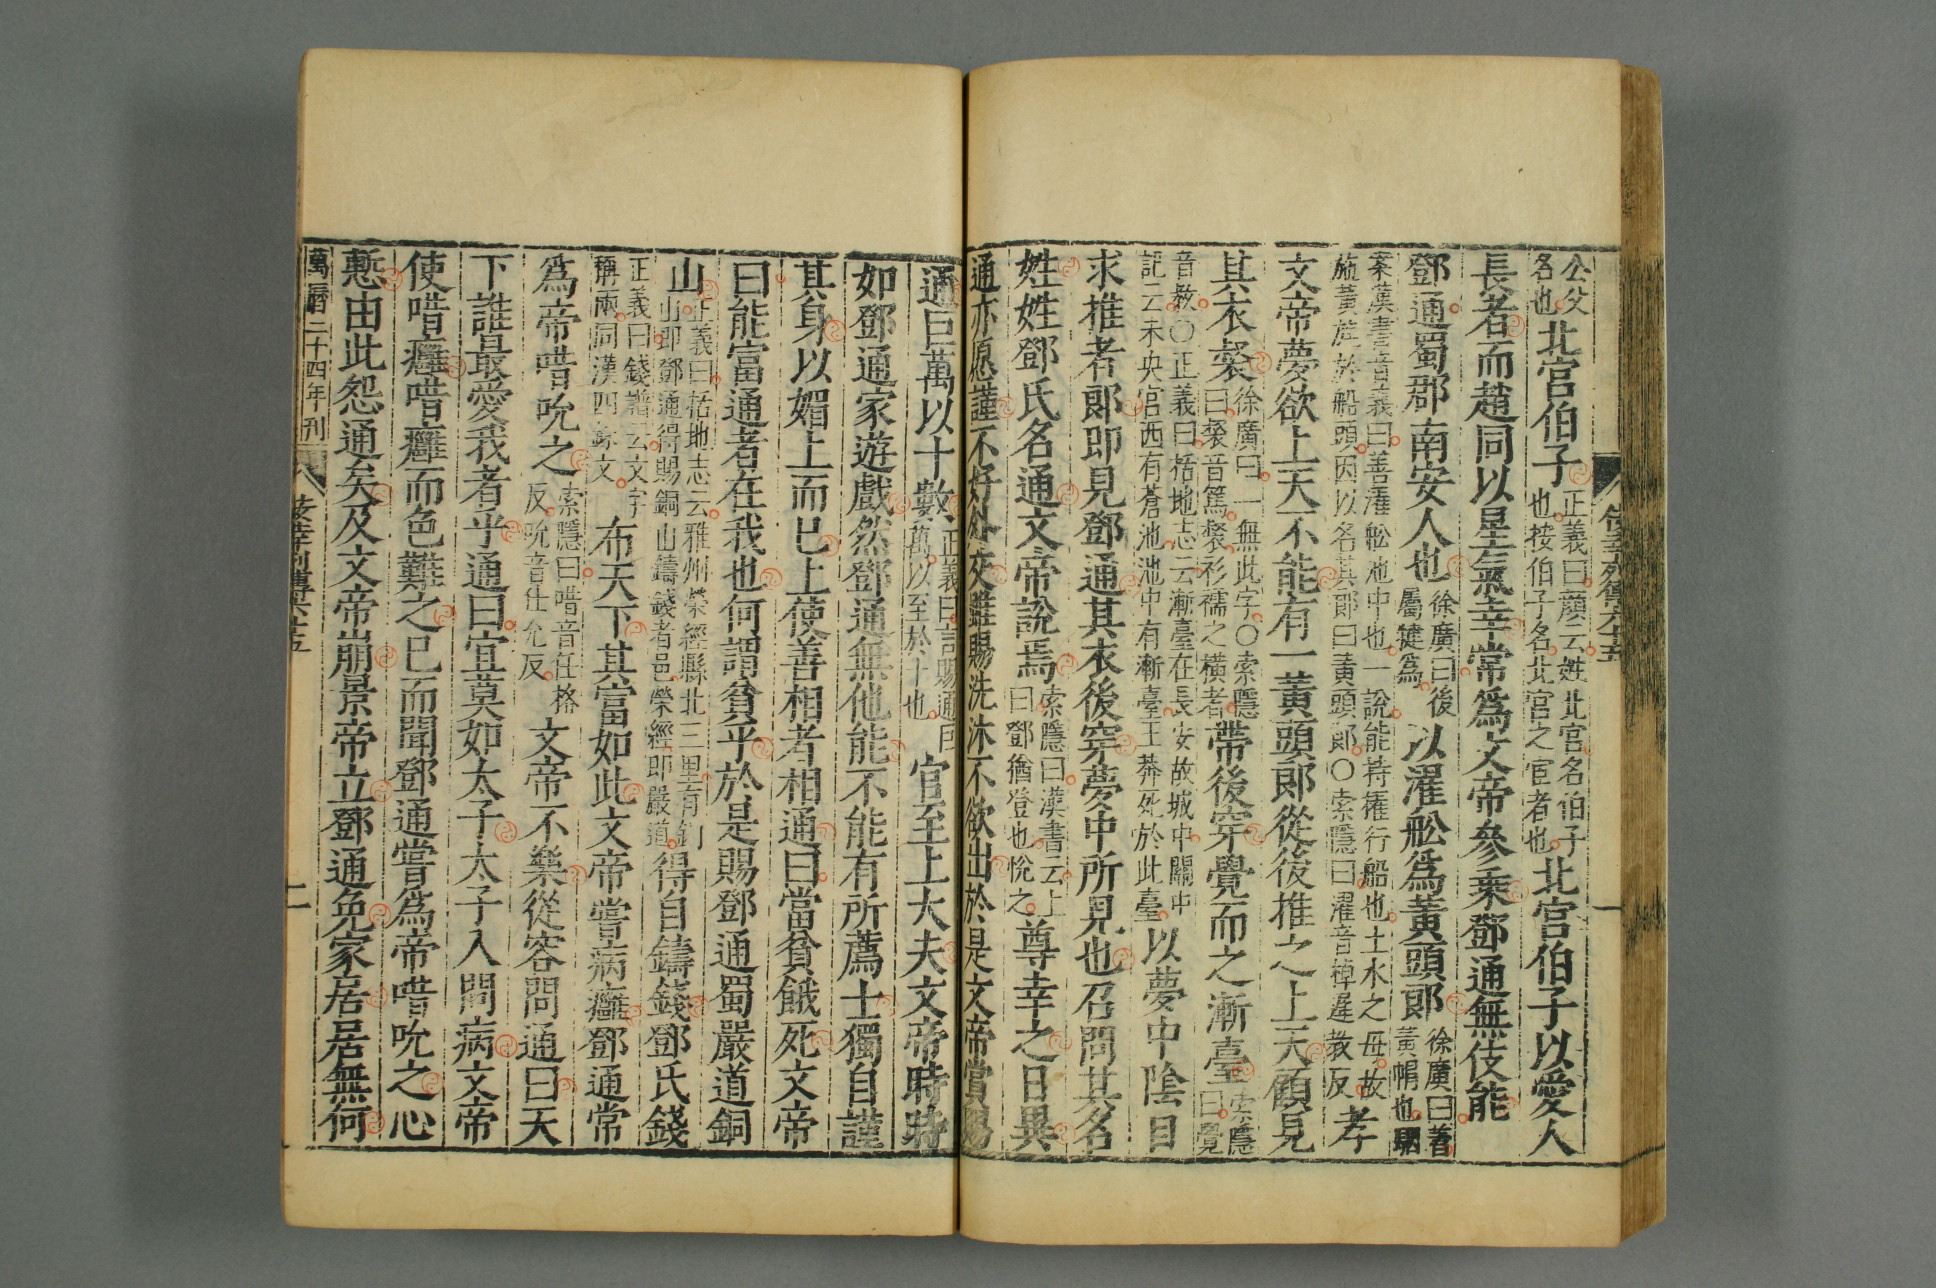 公父
名也 北宮伯子 正義曰顏云姓北宮名伯子
也按伯子名北宮之宦者也 北宮伯子以愛人
長者而趙同以星氣幸常爲文帝參乘鄧通無伎能
鄧通蜀郡南安人也 徐廣曰後
屬犍爲 以濯船爲黃頭郎 徐廣曰著
黃帽也 駰
案漢書音義曰善濯船池中也一說能持擢行船也土水之母故
施黃旄於船頭因以名其郎曰黃頭郎○索隱曰濯音棹遲教反 孝
文帝夢欲上天不能有一黃頭郎從後推之上天顧見
其衣裻 徐廣曰一無此字○索隱
曰裻音篤裻衫襦之橫者 帶後穿覺而之漸臺 索隱
曰覺
音教○正義曰括地志云漸臺在長安故城中關中
記云未央宮西有蒼池池中有漸臺王莽死於此臺 以夢中陰目
求推者郎即見鄧通其衣後穿夢中所見也召問其名
姓姓鄧氏名通文帝說焉 索隱曰漢書云上
曰鄧猶登也悅之 尊幸之日異
通亦愿謹不好外交雖賜洗沐不欲出於是文帝賞賜
通巨萬以十數 正義曰言賜通巨
萬以至於十也 官至上大夫文帝時時
如鄧通家遊戲然鄧通無他能不能有所薦士獨自謹
其身以媚上而已上使善相者相通曰當貧餓死文帝
曰能富通者在我也何謂貧乎於是賜鄧通蜀嚴道銅
山 正義曰括地志云雅州榮經縣北三里有銅
山即鄧通得賜銅山鑄錢者邑榮經即嚴道 得自鑄錢鄧氏錢
正義曰錢譜云文字
稱兩同漢四銖文 布天下其富如此文帝嘗病癰鄧通常
爲帝唶吮之 索隱曰唶音任格
反吮音仕允反 文帝不樂從容問通曰天
下誰最愛我者乎通曰宜莫如太子太子入問病文帝
使唶癰唶癰而色難之已而聞鄧通嘗爲帝唶吮之心
慙由此怨通矣及文帝崩景帝立鄧通免家居居無何
萬曆二十四年刊 佞幸列傳六十五 二